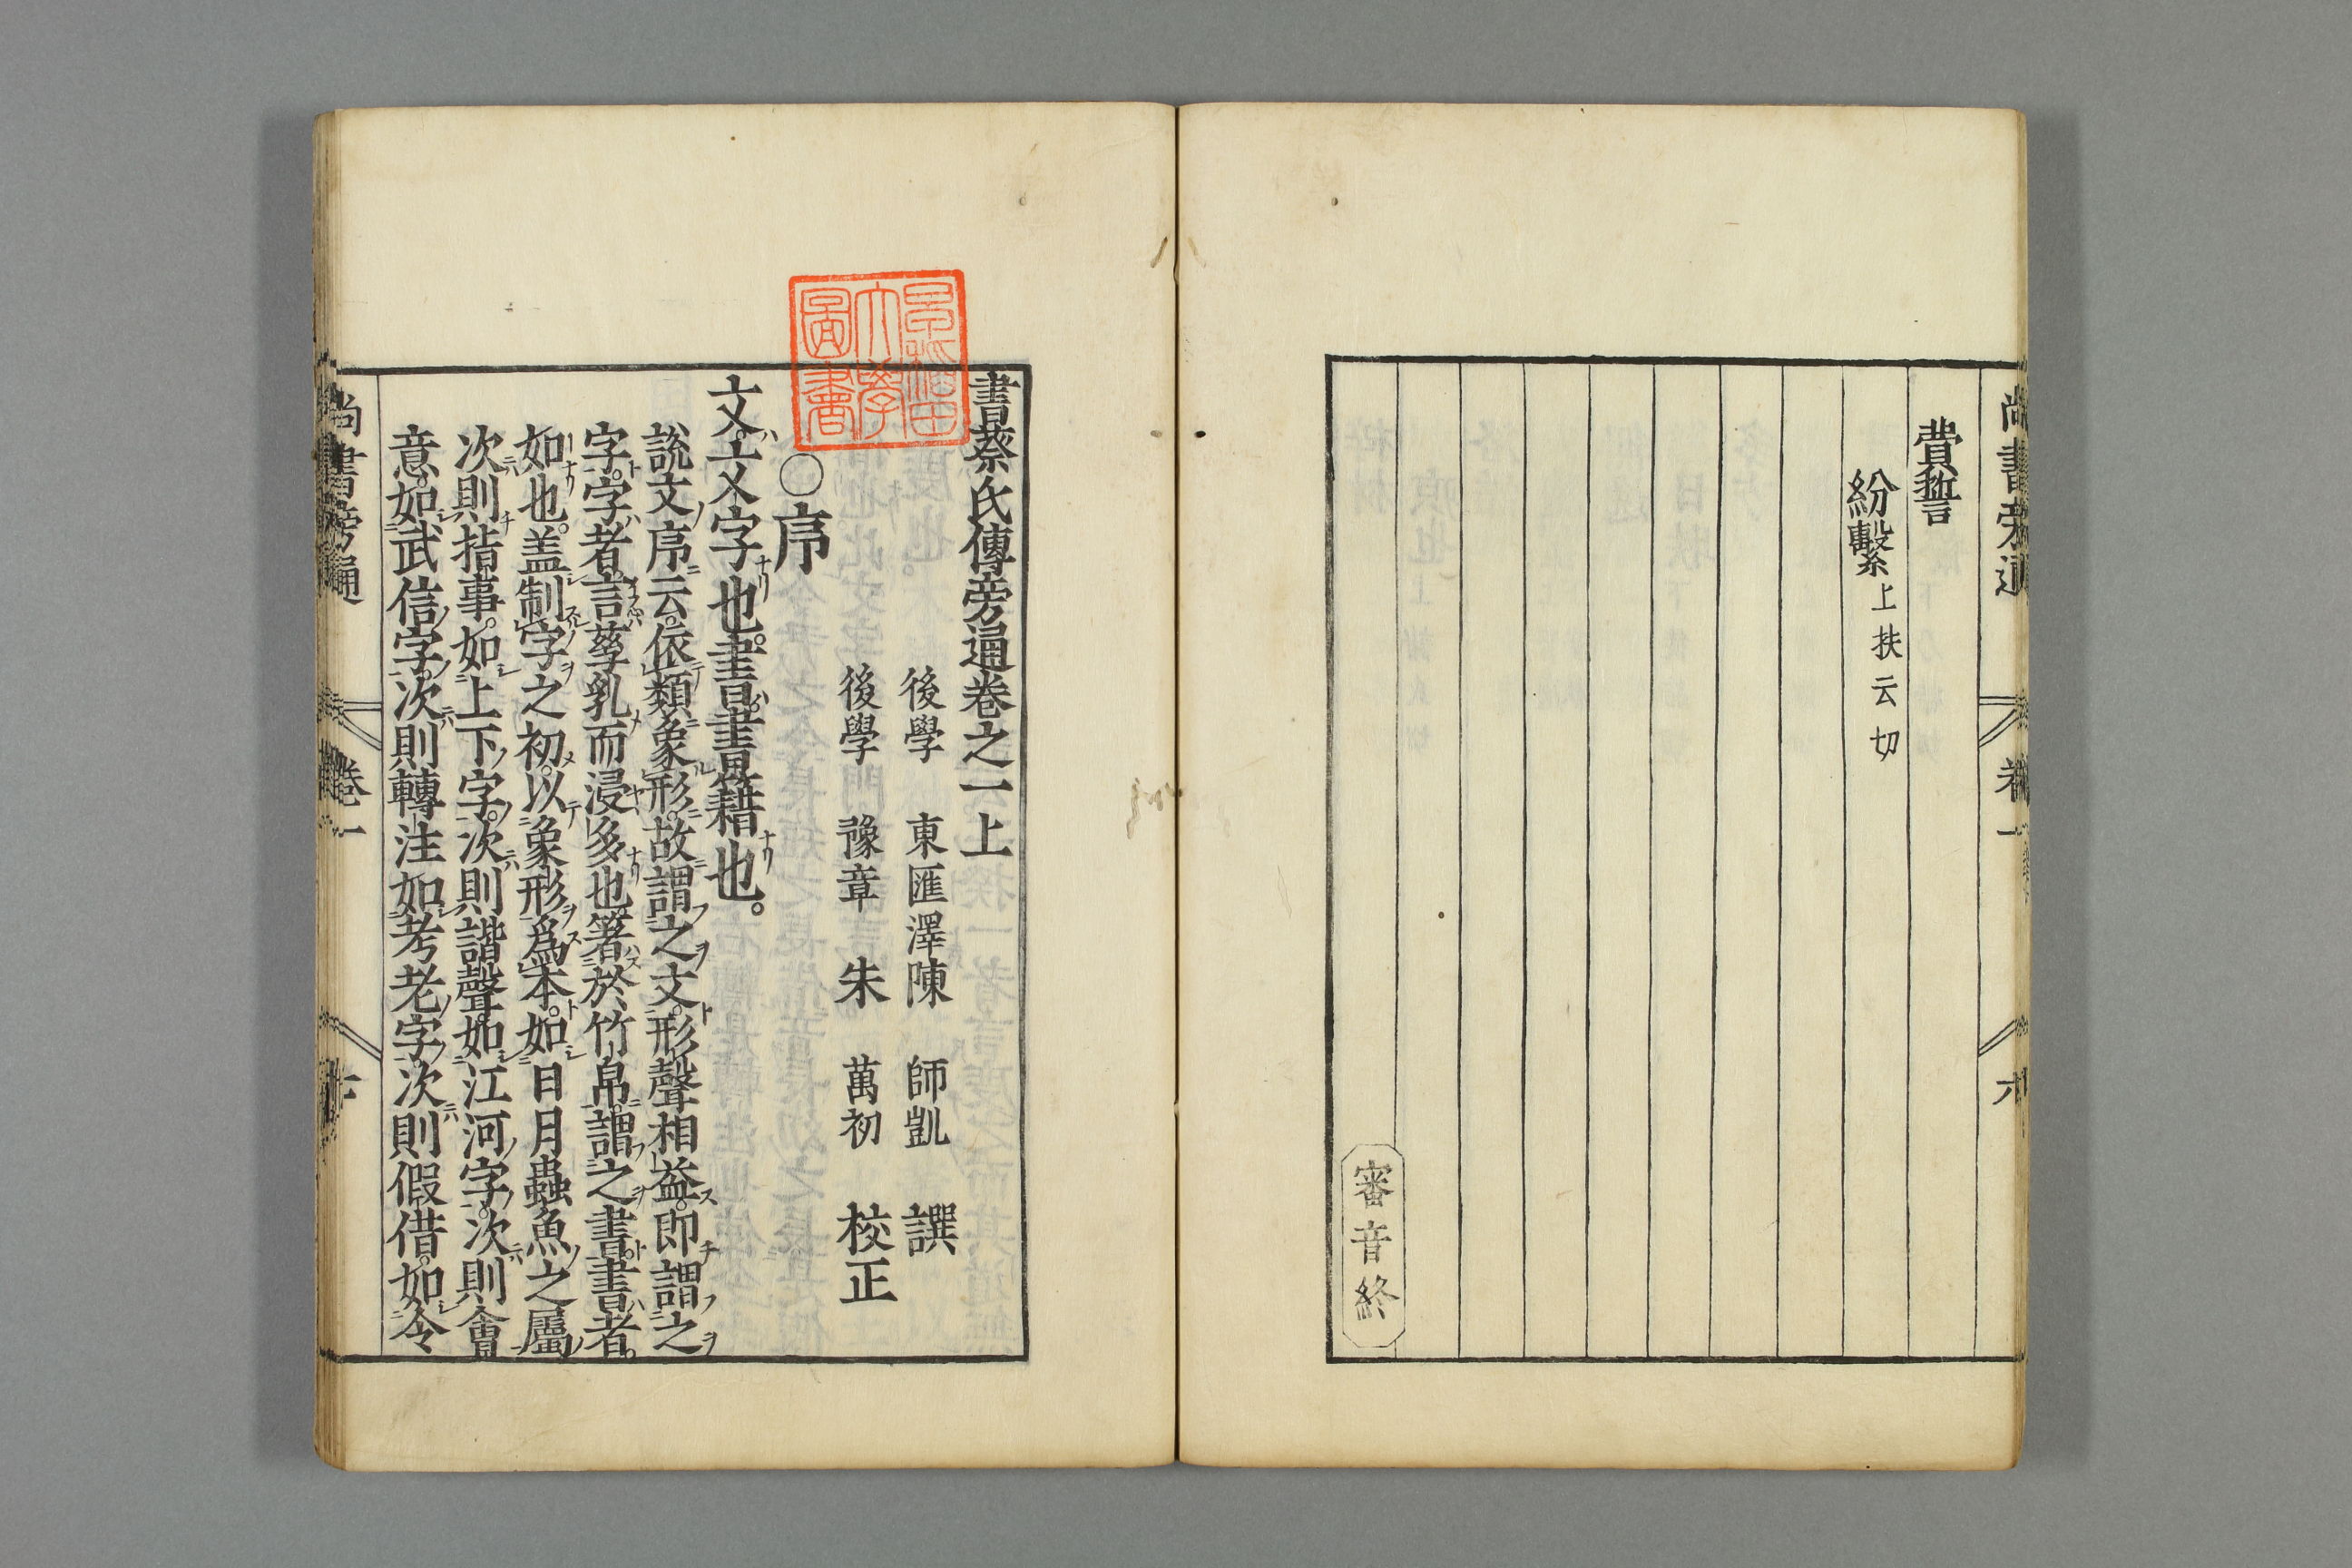 尚書旁通 卷一 六
費誓
紛繫 上扶云切
審音終
早稲田大學圖書
書蔡氏傳旁通卷之一上
後學 東匯澤陳 師凱 譔
後學 豫章 朱 萬初 校正
○序
文。文字也。書。書籍也。
說文序云。依類象形。故謂之文。形聲相益。即謂之
字。字者言孳乳而浸多也。箸於竹帛。謂之書。書者。
如也。盖制字之初。以象形爲本。如日月蟲魚之屬
次則指事。如上下字。次則諧聲。如江河字。次則會
意。如武信字。次則轉注如考老字。次則假借。如令
尚書旁通 卷一